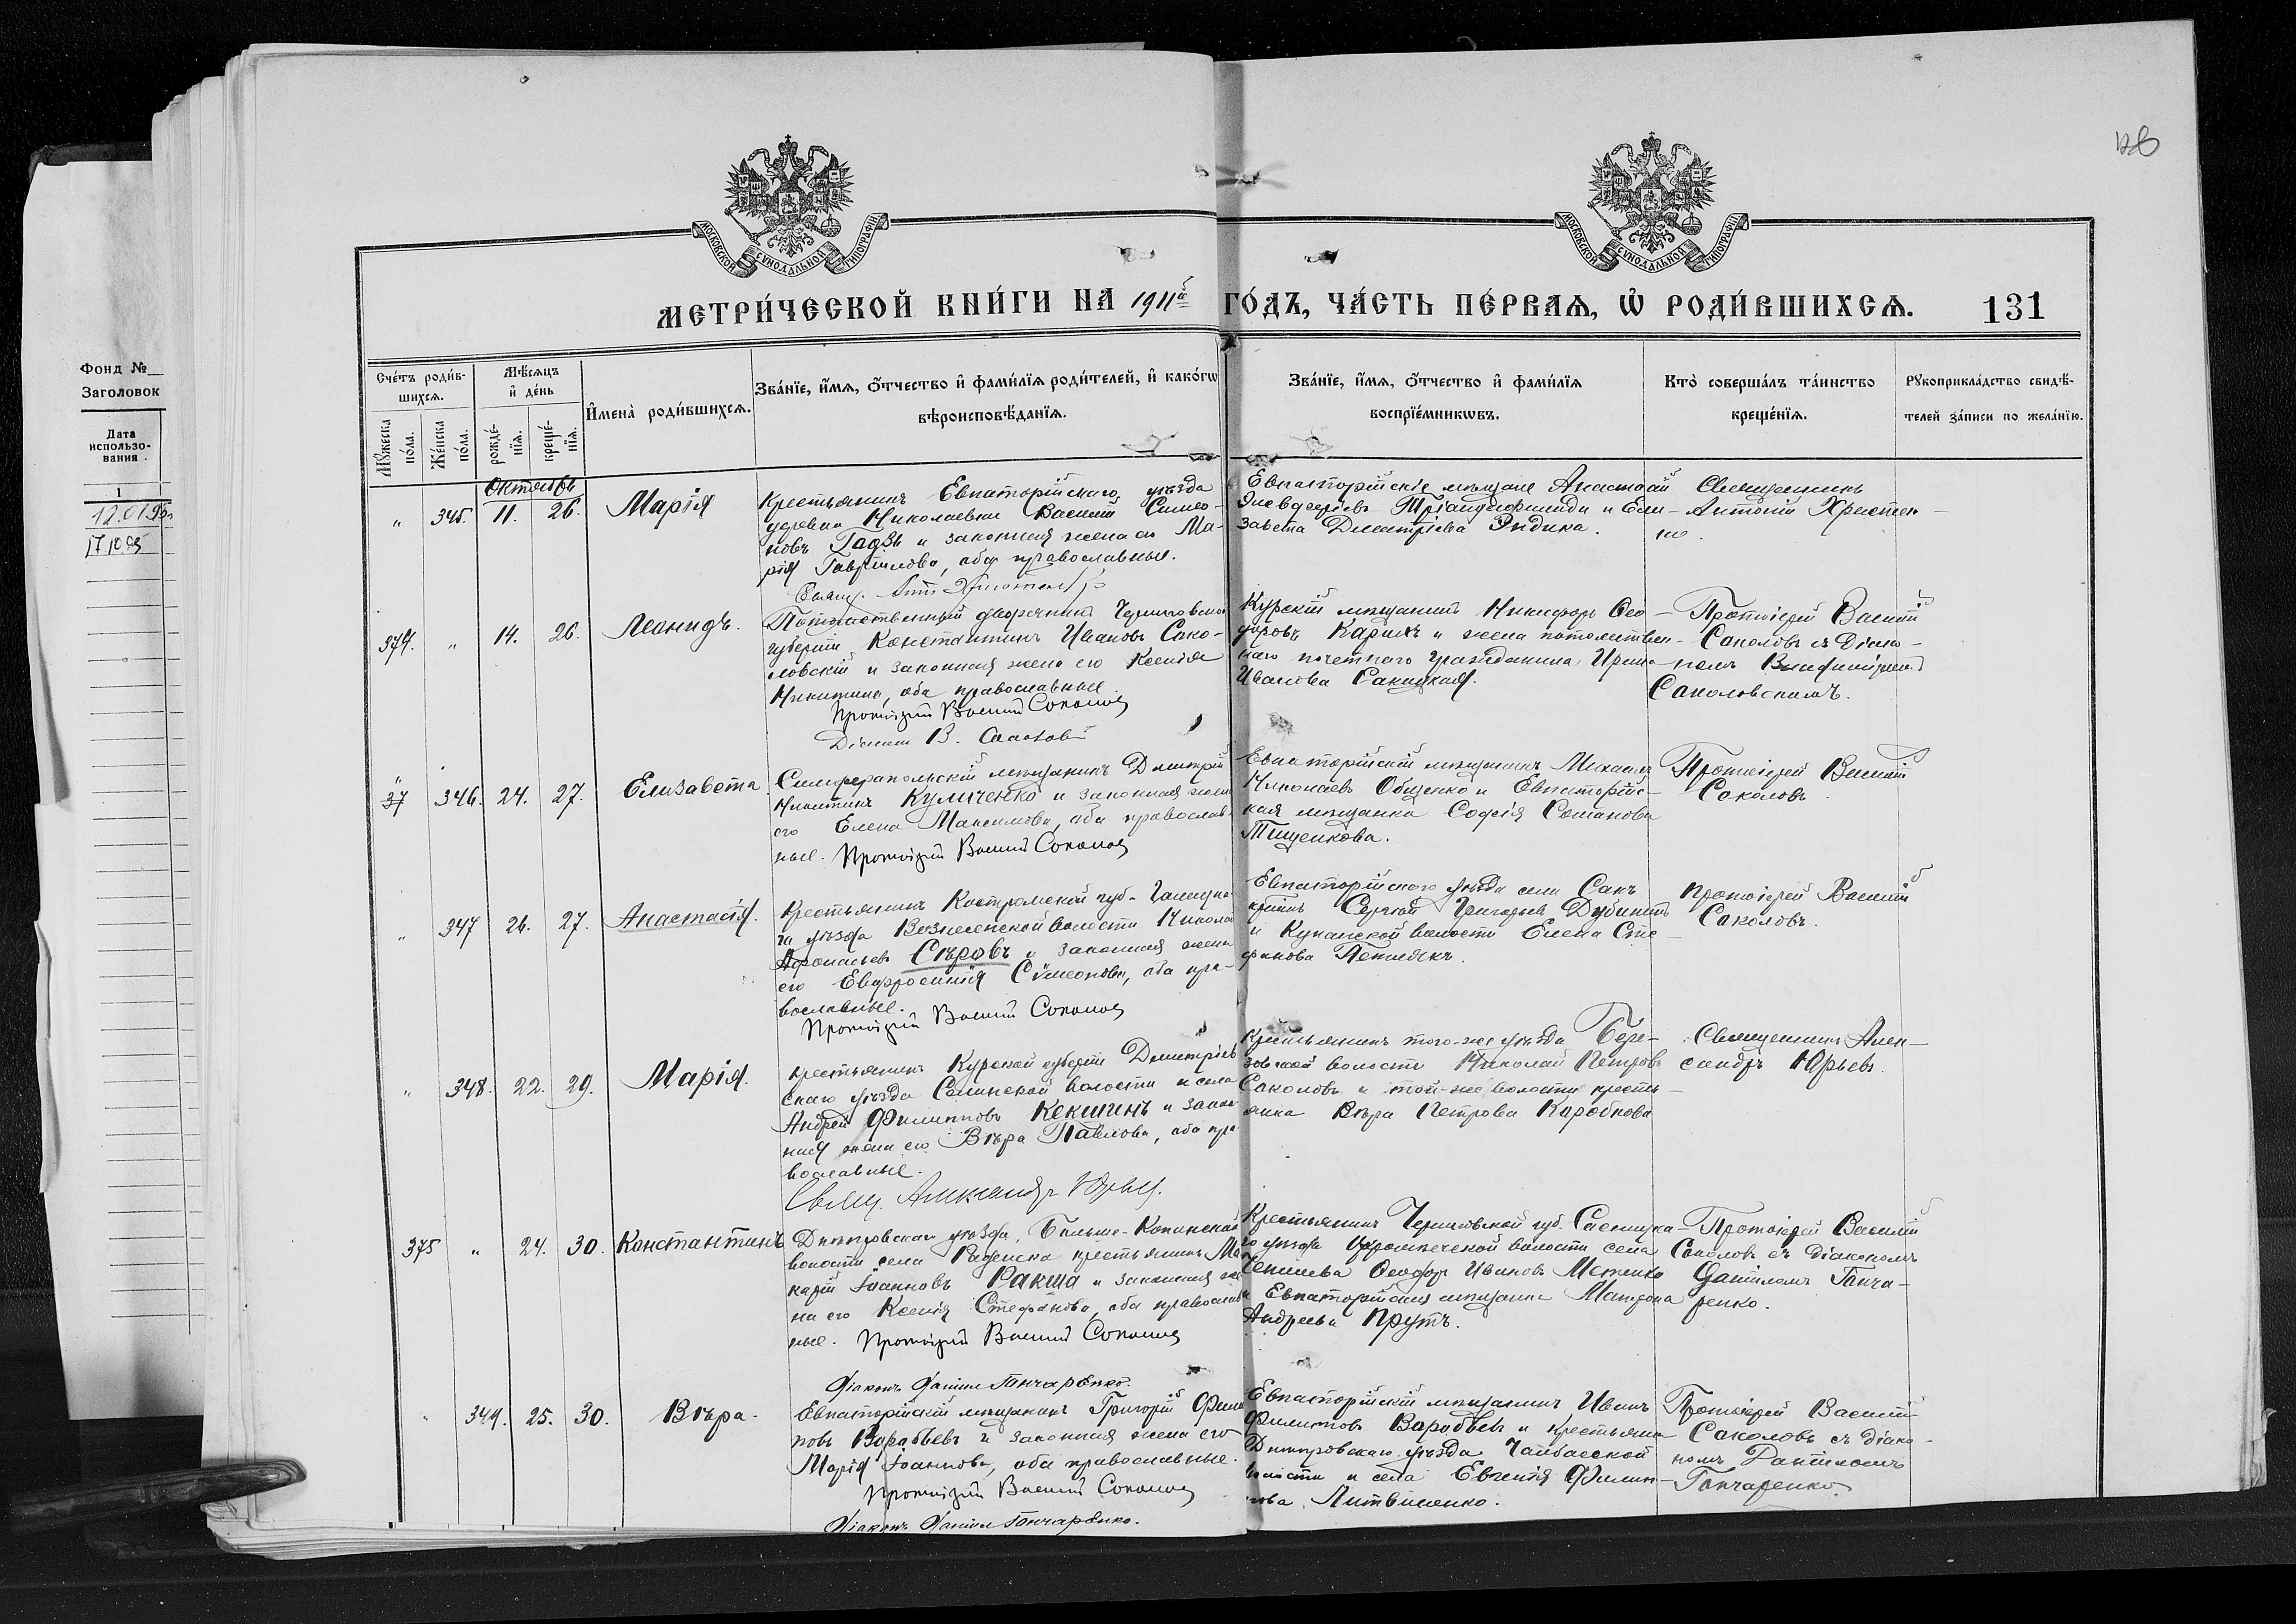 128
МОСКОВСКОЙ СѴНОДАЛЬНОЙ ТИПОГРАФІИ
МОСКОВСКОЙ СѴНОДАЛЬНОЙ ТИПОГРАФІИ
МЕТРИ́ЧЕСКОЙ КНИ́ГИ НА 1911й ГО́ДЪ, ЧА́СТЬ ПЕ́РВАѦ, Ѡ РОДИ́ВШИХСѦ. 131
Фонд №
Заголовок
Дата
использо-
вания
1
Сче́тъ роди́в-
шихсѧ.
Мꙋ́жеска
по́ла.
Же́нска
по́ла.
Мѣ́сѧцъ
и҆ де́нь
рожде́-
нїѧ.
креще́-
нїѧ.
И҆мена̀ роди́вшихсѧ.
Зва́нїе, и҆́мѧ, ѻ҆́тчество и҆ фами́лїѧ роди́телей, и҆ како́гѡ
вѣроисповѣ́данїѧ.
Зва́нїе, и҆́мѧ, ѻ҆́тчество и҆ фами́лїѧ
воспрїе́мникѡвъ.
Кто̀ соверша́лъ та́инство
креще́нїѧ.
Рꙋкоприкла́дство свидѣ́-
телей за́писи по жела́нїю.
Октябрь
" 345. 11. 26. Марія
Крестьянинъ Евпаторійскаго уѣзда
деревни Николаевки Василій Симео-
новъ Гадзь и законная жена его Ма-
рія Гаврилова, оба православные.
Евпаторійскіе мѣщане Анастасій
Тріандафилиди и Ели-
завета Димитріева Яндика.
Священникъ
Антоній Христен-
ко.
374. " 14. 26. Леонидъ.
Потомственный дворянинъ Черниговской
губерніи Константинъ Ивановъ Соко-
ловскій и законная жена его Ксенія
Никитина, оба православные.
Протоіерей Василій Соколовъ
Діаконъ В.
Курскій мѣщанинъ Никифоръ Ѳео-
доровъ Карихъ и жена потомствен-
наго почетнаго гражданина Ирина
Иванова Сакицкая.
Протоіерей Василій
Соколовъ съ діако-
номъ Владиміромъ
Соколовскимъ.
" 37 346. 24. 27. Елизавета
Симферопольскій мѣщанинъ Димитрій
Никитинъ Куличенко и законная жена
его Елена Максимова, оба православ-
ные. Протоіерей Василій Соколовъ
Евпаторійскій мѣщанинъ Михаилъ
Николаевъ Общенко и Евпаторійс-
кая мѣщанка Софія
Тищенкова.
Протоіерей Василій
Соколовъ.
" 347 26. 27. Анастасія.
Крестьянинъ Костромской губ.
уѣзда Вознесенской волости Николай
Афанасьевъ Сѣровъ и законная жена
его Евфросинія Сѵмеонова, оба пра-
вославные.
Протоіерей Василій Соколовъ
Евпаторійскаго уѣзда села Сакъ
Сергей Григорьевъ Дубининъ
и Кунанской волости Елена Сте-
фанова
Протоіерей Василій
Соколовъ.
" 348. 22. 29. Марія.
Крестьянинъ Курской губерніи Дмитріев-
скаго уѣзда волости и села
Андрей Филипповъ Кекшинъ и закон-
ная жена его Вѣра Павлова, оба пра-
вославные.
Свящ. Александръ Юрьевъ.
Крестьянинъ того-же уѣзда Бере-
зовской волости Николай Петровъ
Соколовъ и той-же волости кресть-
янка Вѣра Петрова Коробкова
Священникъ Алек-
сандръ Юрьевъ.
375 " 24. 30. Константинъ
Днѣпровскаго уѣзда, Больше-Копанской
волости села Раденска крестьянинъ Ма-
карій Іоанновъ Ракша и законная же-
на его Ксенія Стефанова, оба православ-
ные. Протоіерей Василій Соколовъ
Діаконъ Даніилъ Гончаренко.
Крестьянинъ Черниговской губ.
уѣзда волости села
Ѳеодоръ Ивановъ Метенко
и Евпаторійская мѣщанка Матрона
Андреева Прутъ.
Протоіерей Василій
Соколовъ съ діакономъ
Даніиломъ Гонча-
ренко.
349. 25. 30. Вѣра.
Евпаторійскій мѣщанинъ Григорій Филип-
повъ Воробьевъ и законная жена его
Марія Іоаннова, оба православные.
Протоіерей Василій Соколовъ
Діаконъ Даніилъ Гончаренко.
Евпаторійскій мѣщанинъ Иванъ
Филиповъ Воробьевъ и крестьянка
Днѣпровскаго уѣзда Чалбасской
волости и села Евгенія Филип-
пова Литвиненко.
Протоіерей Василій
Соколовъ съ діако-
номъ Даніиломъ
Гончаренко.